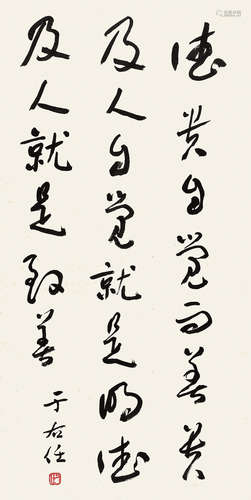 德貴自覺而善貴
及人自覺就是明德
及人就是致善
于右任